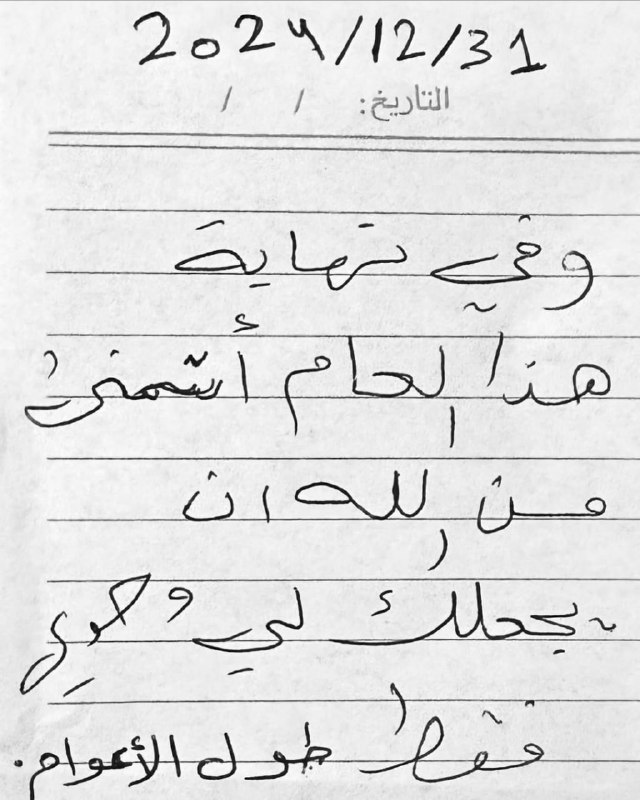 2024/12/31
التاريخ: / /
وفي نهاية
هذا العام أتمنى
من الله ان
يجعلك لي وحدي
فقط طول الأعوام.